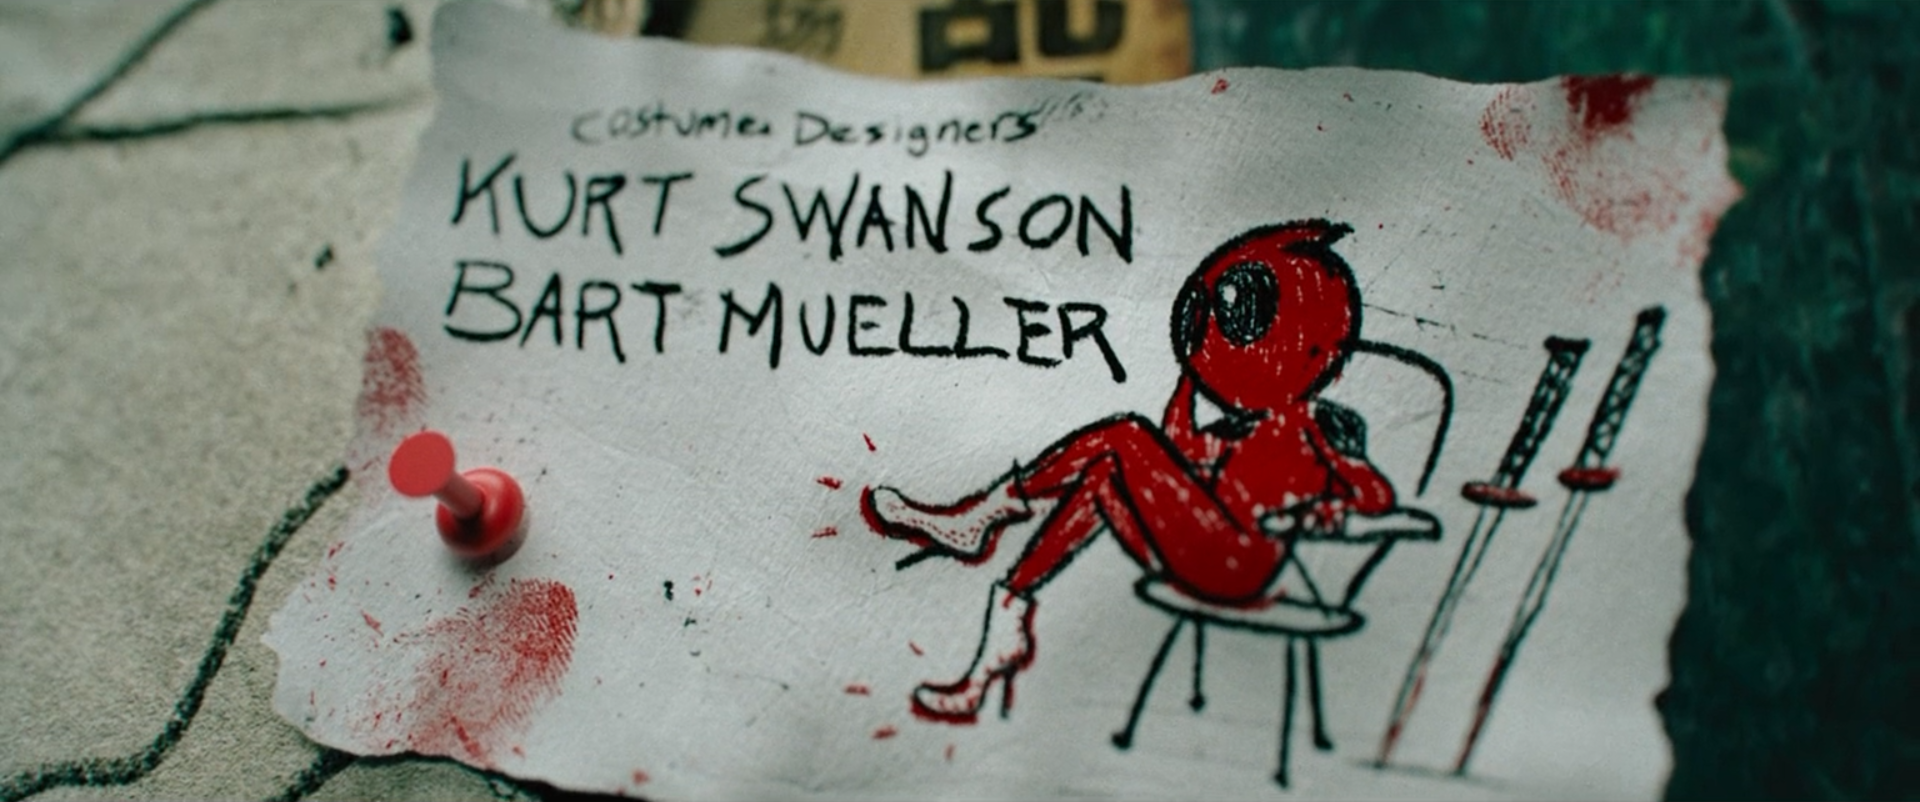 Costume Designers
KURT SWANSON
BART MUELLER